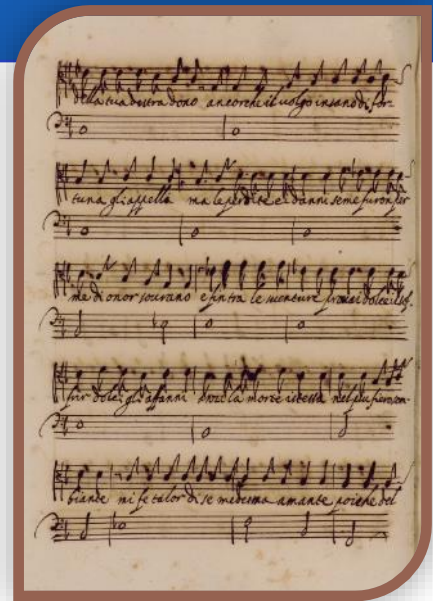 della tua destra dono ancorche il uolgo insano di for-
tuna gli appella ma le perdite e i danni se me furon per
me di onor sourano e fin tra le suenture prouai dolce il sof-
frir dolci gli affanni la morte istessa nel piu fiero sem-
biante mi fe talor di se medesma amante poiche del